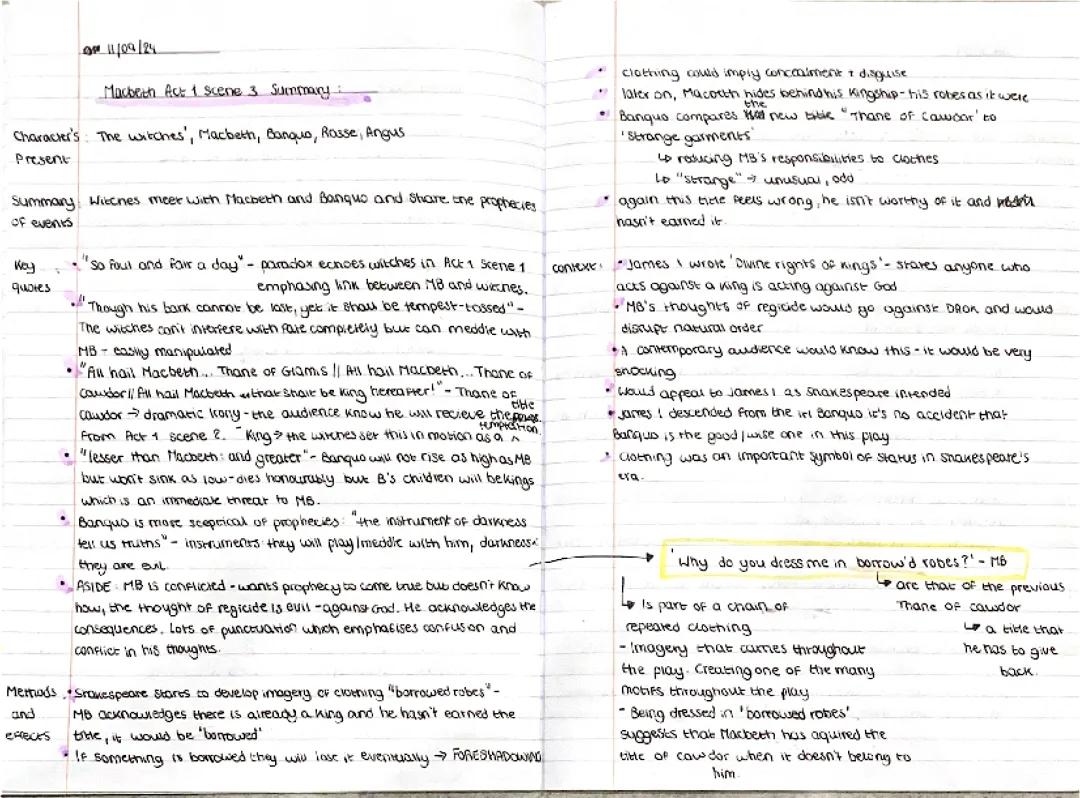 11/09/24
Macbeth Act 1 Scene 3 Summary :
Character's : The witches', Macbeth, Banquo, Rosse, Angus
Present
Summary : Witches meet with Macbeth and Banquo and share the prophecies
of events
Key : • "So foul and fair a day" - paradox echoes witches in Act 1 Scene 1
quotes emphasing link between MB and witches.
• "Though his bark cannot be lost, yet it shall be tempest-tossed" -
The witches can't interfere with fate completely but can meddle with
MB - easily manipulated
• "All hail Macbeth... Thane of Glamis // All hail Macbeth... Thane of
Cawdor // All hail Macbeth that shalt be King hereafter!" - Thane of
Cawdor → dramatic irony - the audience know he will recieve the title
From Act 1 scene 2. - King → the witches set this in motion as a ^ temptation.
• "lesser than Macbeth: and greater" - Banquo will not rise as high as MB
but won't sink as low - dies honourably but B's children will be kings
which is an immediate threat to MB.
• Banquo is more sceptical of prophecies: "the instrument of darkness
tell us truths" - instruments: they will play/meddle with him, darkness:
they are evil.
• ASIDE : MB is conflicted - wants prophecy to come true but doesn't know
how, the thought of regicide is evil - against God. He acknowledges the
consequences. Lots of punctuation which emphasises confusion and
conflict in his thoughts.
Methods • Shakespeare starts to develop imagery of clothing "borrowed robes" -
and MB acknowledges there is already a king and he hasn't earned the
effects title, it would be 'borrowed'
• If something is borrowed they will lose it eventually → FORESHADOWING
• clothing could imply concealment + disguise
• later on, Macbeth hides behind his Kingship - his robes as it were
• Banquo compares the new title "Thane of Cawdor' to
'strange garments'
↳ reducing MB's responsibilities to clothes
↳ "strange" → unusual, odd
• again this title feels wrong, he isn't worthy of it and
hasn't earned it.
context : • James I wrote 'Divine rights of kings' - states anyone who
acts against a king is acting against God
• MB's thoughts of regicide would go against DROK and would
disrupt natural order
• A contemporary audience would know this - it would be very
shocking
• Would appeal to James I as Shakespeare intended
• James I descended from the irl Banquo it's no accident that
Banquo is the good/wise one in this play
• Clothing was an important symbol of status in Shakespeare's
era.
'Why do you dress me in borrow'd robes?' - MB
↳ are that of the previous
Thane of Cawdor
↳ a title that
he has to give
back.
↳ Is part of a chain of
repeated clothing
- Imagery that carries throughout
the play. Creating one of the many
motifs throughout the play
- Being dressed in 'borrowed robes'
suggests that Macbeth has aquired the
title of cawdor when it doesn't belong to
him.